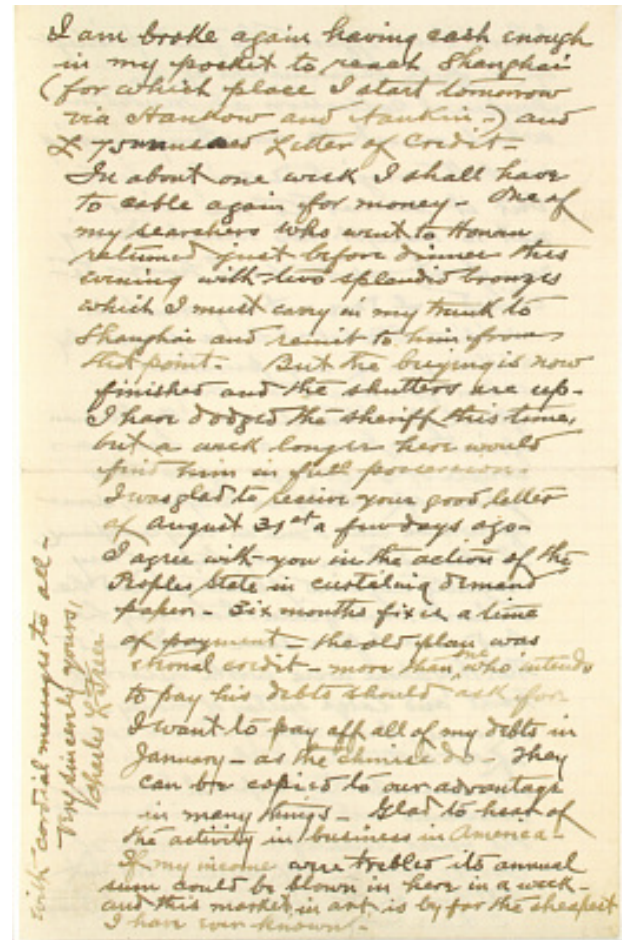 I am broke again having cash enough
in my pocket to reach Shanghai
(for which place I start tomorrow
via Hankow and Nankin-) and
£75 unused Letter of Credit-
In about one week I shall have
to cable again for money- One of
my searchers who went to Honan
returned just before dinner this
evening with two splendid bronzes
which I must carry in my trunk to
Shanghai and remit to him from
that point- But the buying is now
finished and the shutters are up-
I have dodged the sheriff this time,
but a week longer here would
find him in full possession-
I was glad to receive your good letter
of August 31st a few days ago-
I agree with you in the action of the
Peoples State in curtailing demand
paper- Six months fixes a time
of payment- the old plan was
eternal credit- more than one who intends
to pay his debts should ask for
I want to pay off all of my debts in
January- as the Chinese do- They
can be copied to our advantage
in many things- Glad to hear of
the activity in business in America-
If my income were trebled its annual
sum could be blown in here in a week-
and this market in art is by far the cheapest
I have ever known-
with cordial messages to all-
Very sincerely yours,
Charles L Freer